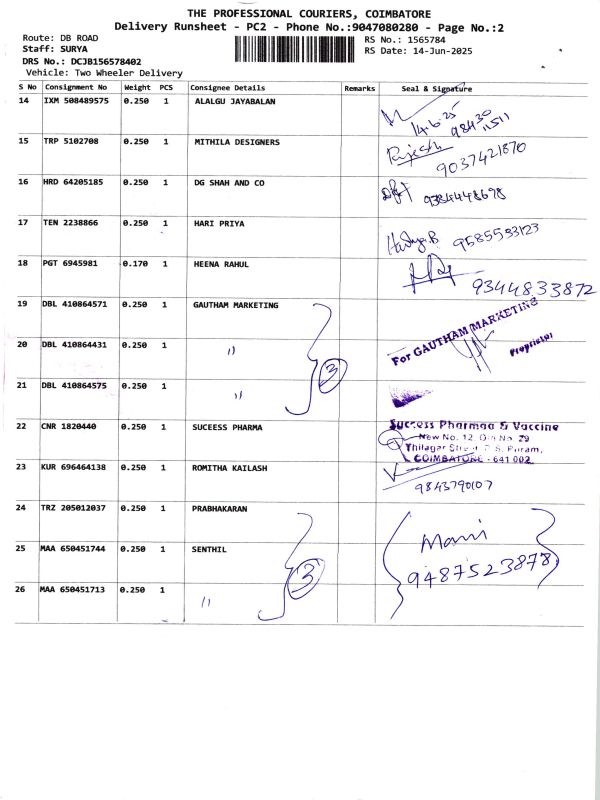 THE PROFESSIONAL COURIERS, COIMBATORE
Delivery Runsheet - PC2 - Phone No.:9047080280 - Page No.:2
Route: DB ROAD RS No.: 1565784
Staff: SURYA RS Date: 14-Jun-2025
DRS No.: DCJB156578402
Vehicle: Two Wheeler Delivery
S No Consignment No Weight PCS Consignee Details Remarks Seal & Signature
14 IXM 508489575 0.250 1 ALALGU JAYABALAN
14.6.25 98430
11511
15 TRP 5102708 0.250 1 MITHILA DESIGNERS Rajesh
9037421870
16 HRD 64205185 0.250 1 DG SHAH AND CO 9384448698
17 TEN 2238866 0.250 1 HARI PRIYA 9585533123
18 PGT 6945981 0.170 1 HEENA RAHUL 9344833872
19 DBL 410864571 0.250 1 GAUTHAM MARKETING
20 DBL 410864431 0.250 1 " 3 For GAUTHAM MARKETING
Proprietor
21 DBL 410864575 0.250 1 "
22 CNR 1820440 0.250 1 SUCEESS PHARMA Success Pharmaa & Vaccine
New No. 12, Old No. 29
Thilagar Street, R. S. Puram,
COIMBATORE - 641 002.
23 KUR 696464138 0.250 1 ROMITHA KAILASH
9843790107
24 TRZ 205012037 0.250 1 PRABHAKARAN
25 MAA 650451744 0.250 1 SENTHIL 3 Mani
9487523878
26 MAA 650451713 0.250 1 "